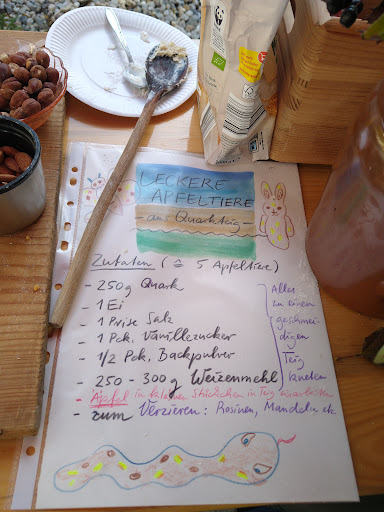 LECKERE
APFELTIERE
- aus Quarkteig -
Zutaten (≙ 5 Apfeltiere)
- 250g Quark
- 1 Ei
- 1 Prise Salz
- 1 Pck. Vanillezucker
- 1/2 Pck. Backpulver
- 250 - 300g Weizenmehl
Alles
zu einem
geschmei-
digen
Teig
kneten
- Äpfel in kleinen Stückchen in Teig einarbeiten
- zum Verzieren: Rosinen, Mandeln etc.
WWF